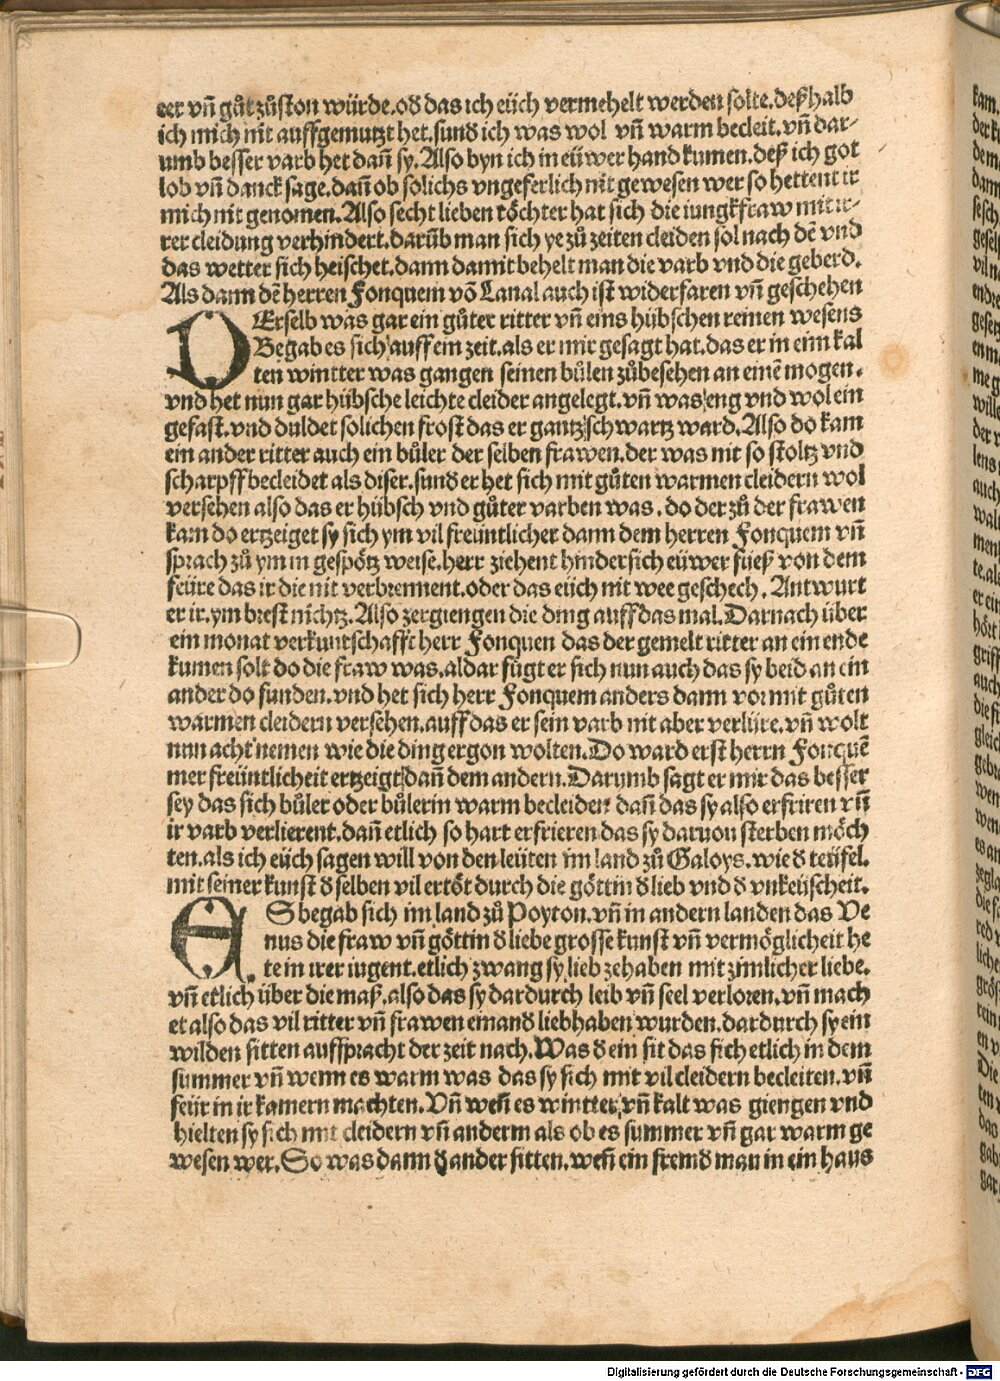 eer vñ gůt zůston würde. oď das ich eüch vermehelt werden solte. deßhalb
ich mich nit auffgemutzt het. sunď ich was wol vñ warm becleit. vñ dar⸗
umb besser varb het dañ sy. Also byn ich in eüwer hand kumen. deß ich got
lob vñ danck sage. dañ ob solichs vngeferlich nit gewesen wer so hettent ir
mich nit genomen. Also secht lieben töchter hat sich die iungkfraw mit ir⸗
rer cleidung verhindert. darüb man sich ye zů zeiten cleiden sol nach dē vnd
das wetter sich heischet. dann damit behelt man die varb vnd die geberd.
Als dann dē herren Fonquem vō Lanal auch ist widerfaren vñ geschehen
DErselb was gar ein gůter ritter vñ eins hübschen reinen wesens
Begab es sich auff ein zeit. als er mir gesagt hat. das er in einn kal
ten wintter was gangen seinen bůlen zůbesehen an einē mogen.
vnd het nun gar hübsche leichte cleider angelegt. vñ was eng vnd wol ein
gefast. vnd duldet solichen frost das er gantz schwartz ward. Also do kam
ein ander ritter auch ein bůler der selben frawen. der was nit so stoltz vnd
scharpff becleidet als diser. sunď er het sich mit gůten warmen cleidern wol
versehen also das er hübsch vnd gůter varben was. do der zů der frawen
kam do ertzeiget sy sich ym vil freüntlicher dann dem herren Fonquem vñ
sprach zů ym in gespötz weise. herr ziehent hindersich eüwer füeß von dem
feüre das ir die nit verbrennent. oder das eüch nit wee geschech. Antwurt
er ir. ym brest nichtz. Also zergiengen die ding auff das mal. Darnach über
ein monat verkuntschafft herr Fonquen das der gemelt ritter an ein ende
kumen solt do die fraw was. aldar fügt er sich nun auch das sy beid an ein
ander do funden. vnd het sich herr Fonquem anders dann vor mit gůten
warmen cleidern versehen. auff das er sein varb nit aber verlüre. vñ wolt
nun acht nemen wie die ding ergon wolten. Do ward erst herrn Fonquē
mer freüntlicheit ertzeigt dañ dem andern. Darumb sagt er mir das besser
sey das sich bůler oder bůlerin warm becleiden dañ das sy also erfriren vñ
ir varb verlierent. dañ etlich so hart erfrieren das sy daruon sterben möch
ten. als ich eüch sagen will von den leüten im land zů Galoys. wie ď teüfel.
mit seiner kunst ď selben vil ertöt durch die göttin ď lieb vnd ď vnkeüscheit.
ES begab sich im land zů Poyton. vñ in andern landen das Ve
nus die fraw vñ göttin ď liebe grosse kunst vñ vermöglicheit he
te in irer iugent. etlich zwang sy lieb zehaben mit zimlicher liebe.
vñ etlich über die maß. also das sy dardurch leib vñ seel verloren. vñ mach
et also das vil ritter vñ frawen einanď liebhaben wurden. dardurch sy ein
wilden sitten auffpracht der zeit nach. Was ď ein sit das sich etlich in dem
summer vñ wenn es warm was das sy sich mit vil cleidern becleiten. vñ
feür in ir kamern machten. Vñ weñ es wintter vñ kalt was giengen vnd
hielten sy sich mit cleidern vñ anderm als ob es summer vñ gar warm ge
wesen wer. So was dann ď ander sitten. weñ ein fremď man in ein haus
Digitalisierung gefördert durch die Deutsche Forschungsgemeinschaft - DFG